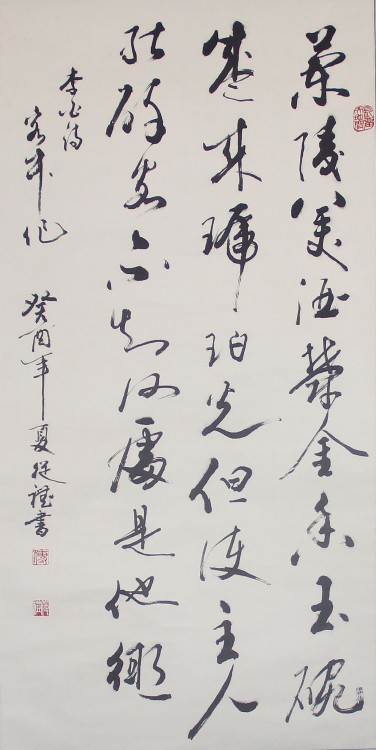 蘭陵美酒欝金香玉碗
盛来琥珀光但使主人
能醉客不知何處是他鄉
李白詩
客中作
癸酉年夏書